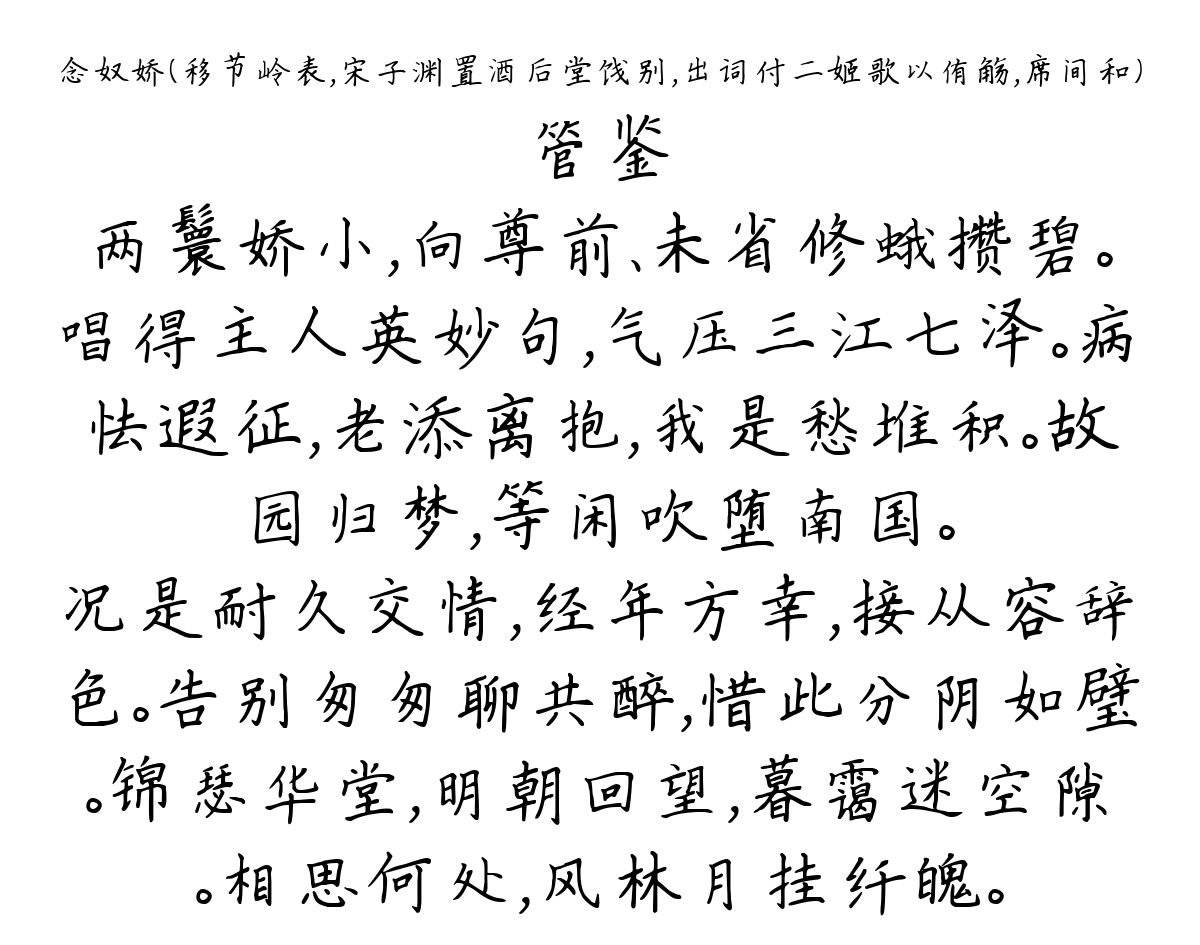 念奴娇(移节岭表,宋子渊置酒后堂饯别,出词付二姬歌以侑觞,席间和)
管鉴
两鬟娇小,向尊前、未省修蛾攒碧。
唱得主人英妙句,气压三江七泽。病
怯遐征,老添离抱,我是愁堆积。故
园归梦,等闲吹堕南国。
况是耐久交情,经年方幸,接从容辞
色。告别匆匆聊共醉,惜此分阴如璧
。锦瑟华堂,明朝回望,暮霭迷空隙
。相思何处,风林月挂纤魄。